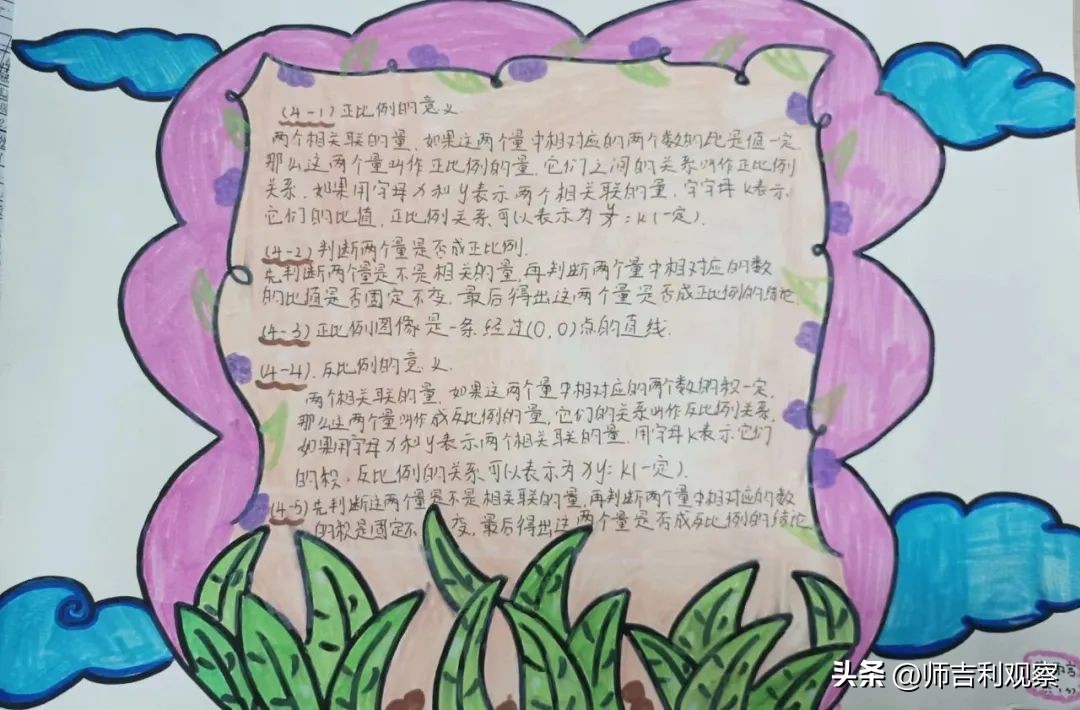 (4-1)正比例的意义.
两个相关联的量,如果这两个量中相对应的两个数的比是值一定
那么这两个量叫作正比例的量,它们之间的关系叫作正比例
关系.如果用字母x和y表示两个相关联的量,字字母k表示
它们的比值,正比例关系可以表示为y/x=k(一定).
(4-2)判断两个量是否成正比例.
先判断两个量是不是相关的量,再判断两个量中相对应的数
的比值是否固定不变,最后得出这两个量是否成正比例的结论
(4-3)正比例图像是一条经过(0,0)点的直线.
(4-4).反比例的意义.
两个相关联的量,如果这两个量中相对应的两个数的积一定,
那么这两个量叫作成反比例的量,它们的关系叫作反比例关系,
如果用字母x和y表示两个相关联的量,用字母k表示它们
的积,反比例的关系可以表示为xy=k(一定).
(4-5)先判断这两个量是不是相关联的量,再判断两个量中相对应的数
的积是固定不变,最后得出这两个量是否成反比例的结论
头条 @师吉利观察